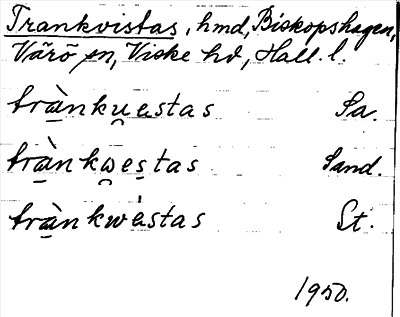 Trankvistas, hmd, Biskopshagen,
Värö sn, Viske hd, Hall. l.
trànku̯estas Sa.
trànkw̯estas Sand.
trànkwèstas St.
1950.